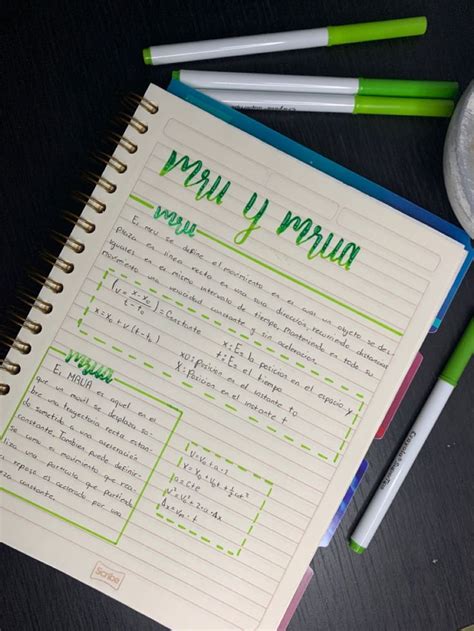 mru y mrua
mru
El mru se define el movimiento en el cual un objeto se des-
plaza en linea recta en una sola dirección, recorriendo distancias
iguales en el mismo intervalo de tiempo, Manteniendo en todo su
movimiento una velocidad constante y sin aceleración.
(v = x-x₀ / t-t₀) = Constante
x = x₀ + v (t-t₀)
x: Es la posición en el espacio y
t: Es el tiempo
x0: Posición en el instante to
X: Posicion en el instante t
mrua
El MRUA es aquel en el
que un movil se desplaza so-
bre una trayectoria recta estan-
do sometido a una aceleración
constante, También puede definir-
se como el movimiento que rea-
liza una formula que partiendo
reposo es acelerado por una
constante.
v = v₀ + a · t
x = x₀ + v₀t + ½ at²
a = cte
v² = v₀² + 2 · a · Δx
Δx = vₘ · t
Scribe